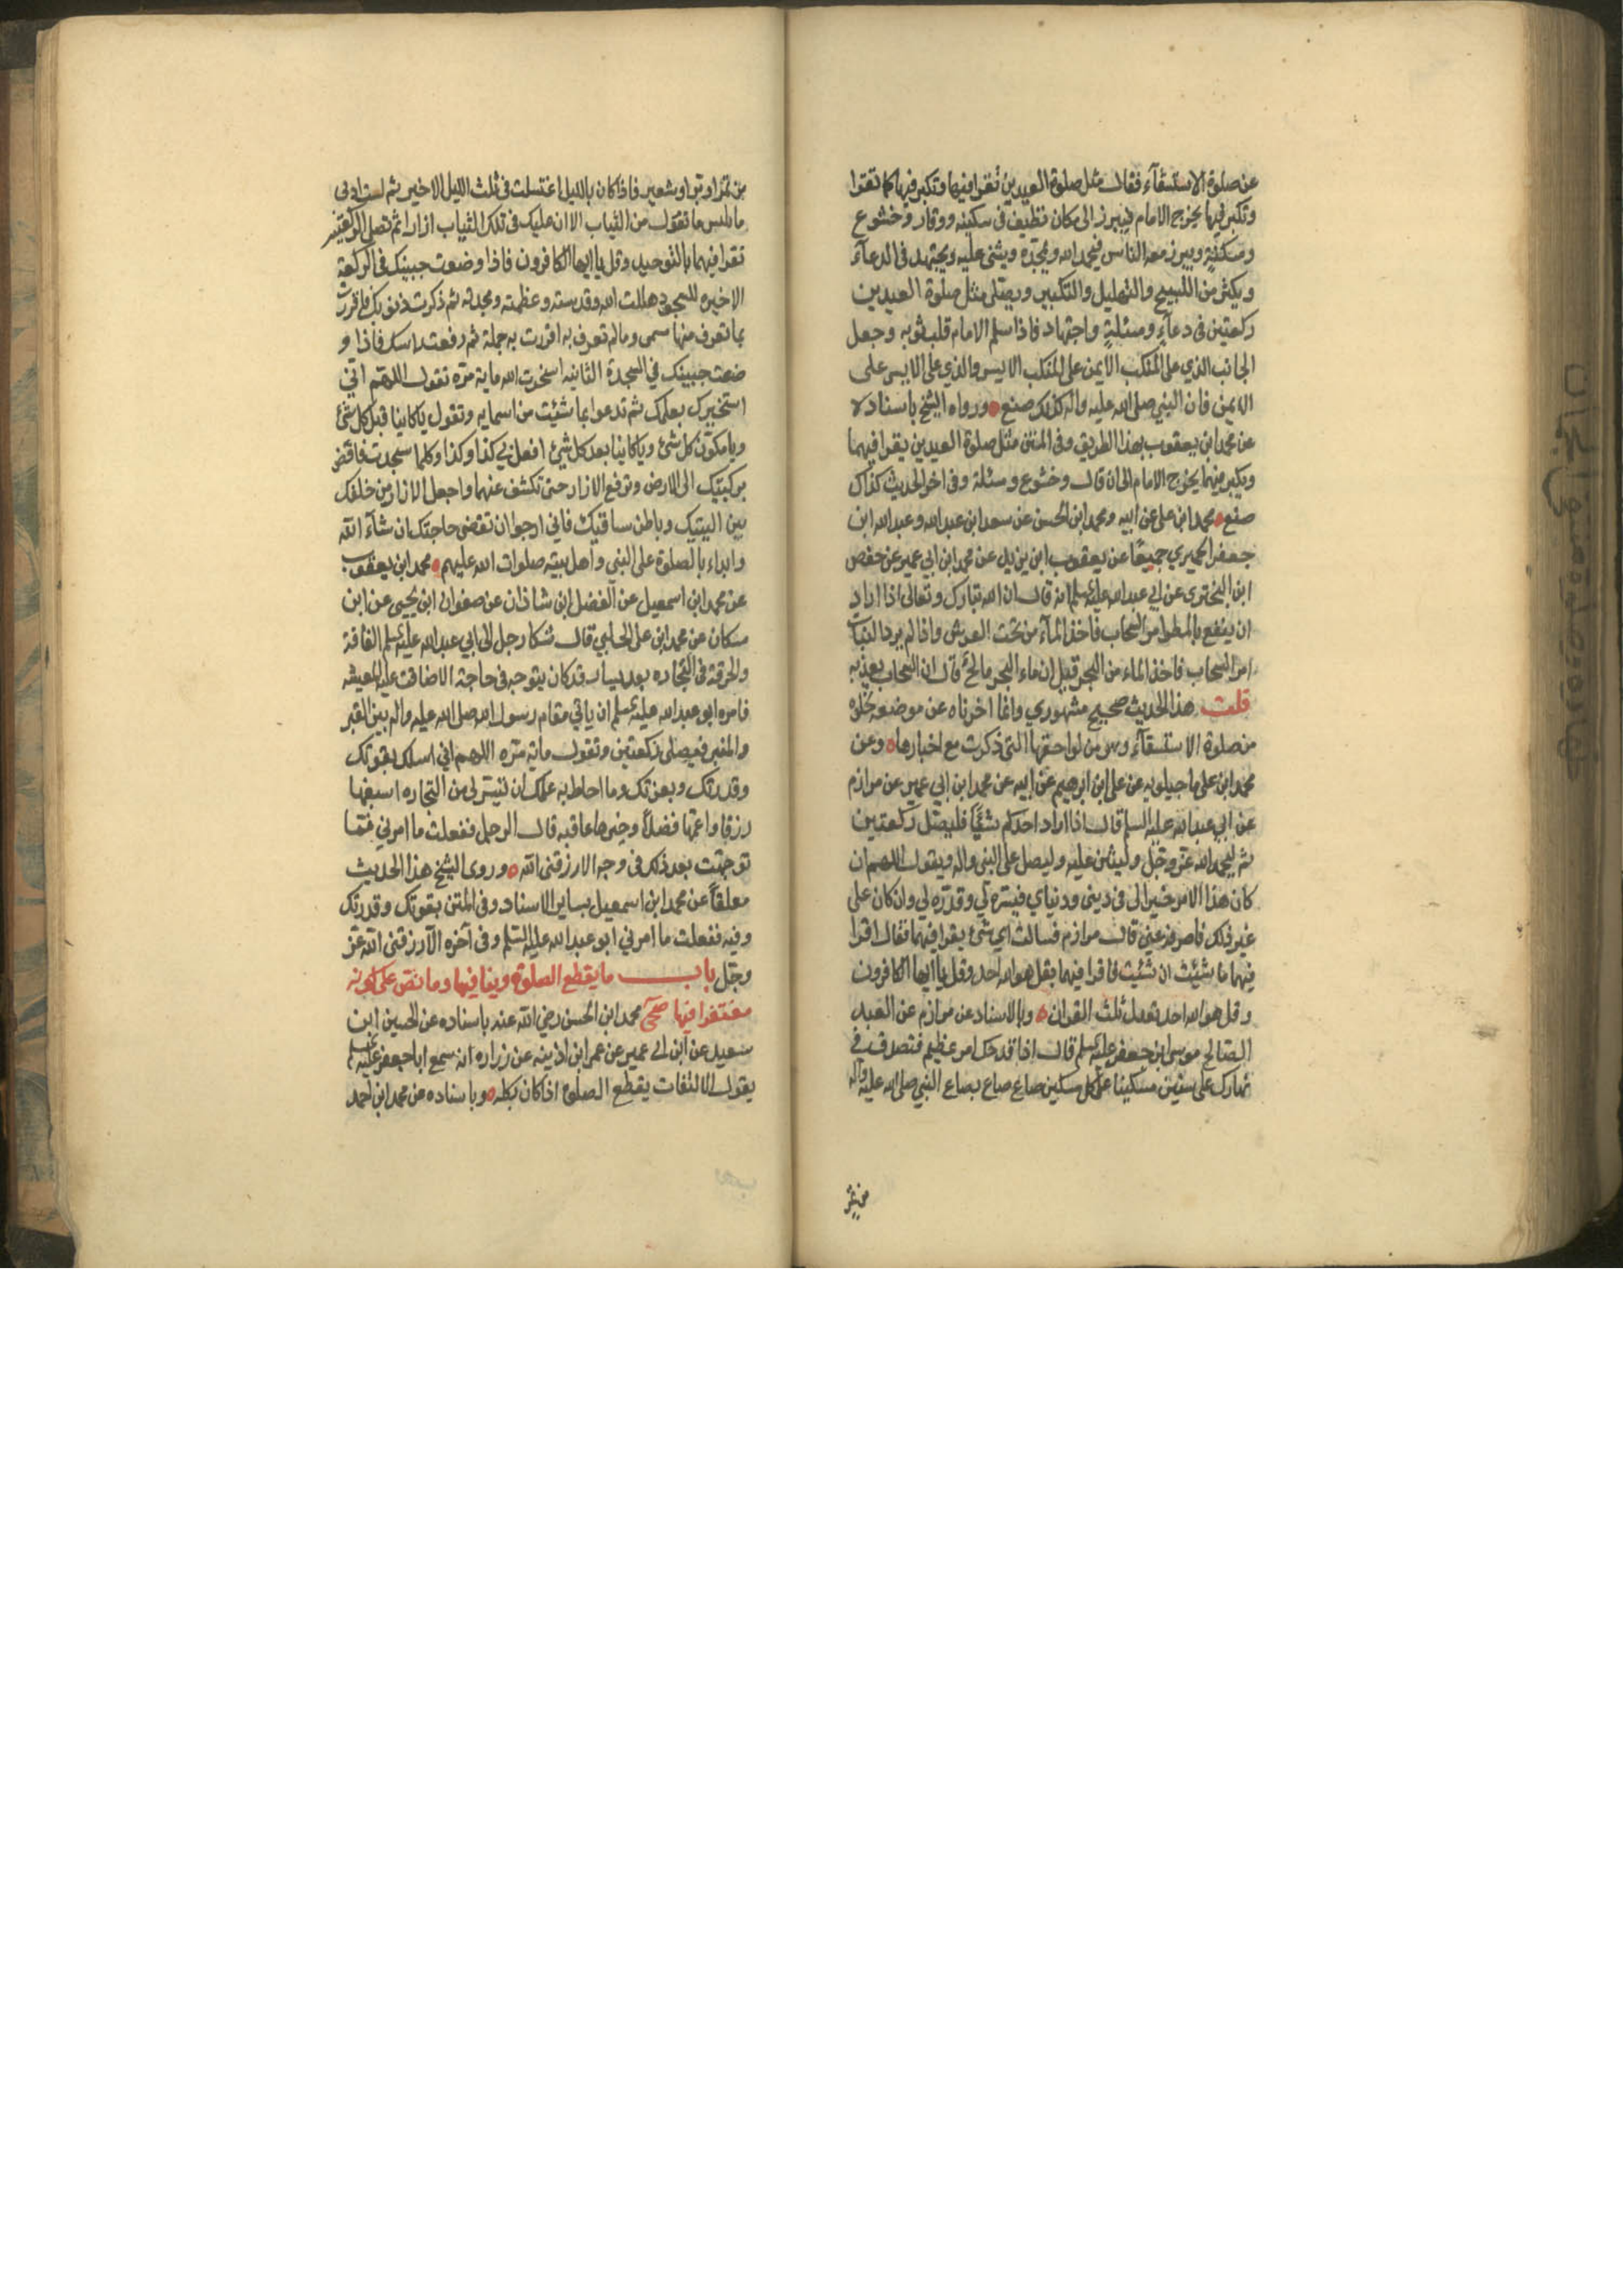 عن صلوة الاستسقآء فقال مثل صلوة العيدين تقرا فيها وتكبر فيها كما تقرا
وتكبر فيها يخرج الامام فيبرز الى مكان نظيف فى سكينه ووقار وخشوع
ومسكنةٍ ويبرز معه الناس فيحمد الله ويمجّده ويثنى عليه ويجتهد فى الدعآء
ويكثر من التسبيح والتهليل والتكبير ويصلى مثل صلوة العيدين
ركعتين فى دعآءٍ ومسئلةٍ واجتهاد فاذا سلم الامام قلب ثوبه وجعل
الجانب الذي على المنكب الايمن على المنكب الايسر والذي على الايسر على
الايمن فان النبي صلى الله عليه واله كذلك صنع ورواه الشيخ باسناده
عن محمد ابن يعقوب بهذا الطريق وفى المتن مثل صلوة العيدين يقرا فيهما
ويكبر فيهما يخرج الامام الى ان قال وخشوع ومسئلة وفى اخر الحديث كذلك
صنع محمد ابن على عن ابيه ومحمد ابن الحسن عن سعد ابن عبد الله وعبد الله ابن
جعفر الحميري جميعًا عن يعقوب ابن يزيد عن محمد ابن ابي عمير عن حفص
ابن البختري عن ابي عبد الله عليه السلم انه قال ان الله تبارك وتعالى اذا اراد
ان ينفع بالمطر امر السحاب فاخذ المآء من تحت العرش واذا لم يرد النبات
امر السحاب فاخذ الماء من البحر قيل ان ماء البحر مالح قال ان السحاب يعذبه
قلت هذا الحديث صحيح مشهوري وانما اخرناه عن موضعه
من صلوة الاستسقآء وهو من لواحقها التى ذكرت مع اخبارها وعن
محمد ابن على ماجيلويه عن على ابن ابرهيم عن ابيه عن محمد ابن ابي عمير عن مرازم
عن ابي عبد الله عليه السلم قال اذا اراد احدكم شيًا فليصل ركعتين
ثم ليحمد الله عز وجل وليثن عليه وليصل على النبى واله ويقول اللهم ان
كان هذا الامر خيرا لى فى دينى ودنياي فيسره لي وقدره لي وان كان على
غير ذلك فاصرفه عنى قال مرازم فسالت اي شئ يقرا فيهما فقال اقرا
فيهما ما شئت ان شئت فاقرا فيهما بقل هو الله احد وقل يا ايها الكافرون
وقل هو الله احد تعدل ثلث القران وبالاسناد عن مرازم عن العبد
الصالح موسى ابن جعفر عليه السلم قال اذا فدحك امر عظيم فتصدق فى
نهارك على ستين مسكينا على كل مسكين صاع صاع بصاع النبي صلى الله عليه واله
من تمر
من تمر او بر او شعير فاذا كان بالليل اغتسلت فى ثلث الليل الاخير ثم لبست ادنى
ما يلبس ما تقول من الثياب الا ان عليك فى تلك الثياب ازارا ثم تصلى الركعتين
تقرا فيهما بالتوحيد وقل يا ايها الكافرون فاذا وضعت جبينك فى الركعة
الاخيره للسجود هللت الله وقدسته وعظمته ومجدته ثم ذكرت ذنوبك فاقررت
بما تعرف منها سمى وما لم تعرف به اقررت به جملة ثم رفعت راسك فاذا و
ضعت جبينك في السجدة الثانيه استخرت الله ماية مره تقول اللهم انى
استخيرك بعلمك ثم تدعوا بما شئت من اسمايه وتقول يا كاينا قبل كل شئ
ويا مكون كل شئ ويا كاينا بعد كل شئ افعل بي كذا وكذا وكلما سجدت فافض
بركبتيك الى الارض وترفع الازار حتى تكشف عنهما واجعل الازار من خلفك
بين اليتيك وباطن ساقيك فاني ارجوا ان تقضى حاجتك ان شآء الله
وابداء بالصلوة على النبى واهل بيته صلوات الله عليهم محمد ابن يعقوب
عن محمد ابن اسمعيل عن الفضل ابن شاذان عن صفوان ابن يحيى عن ابن
مسكان عن محمد ابن على الحلبي قال شكا رجل الى ابي عبد الله عليه السلم الفاقة
والحرفة فى التجاره بعد يسار قد كان يتوجه فى حاجة الا ضاقت عليه المعيشه
فامره ابو عبد الله عليه السلم ان ياتي مقام رسول الله صلى الله عليه واله بين القبر
والمنبر فيصلى ركعتين وتقول ماية مره اللهم اني اسلك بقوتك
وقدرتك وبعزتك وما احاط به علمك ان تيسر لى من التجاره اسبغها
رزقا واعمها فضلا وخيرها عاقبه قال الرجل ففعلت ما امرني فما
توجهت بعد ذلك فى وجه الا رزقنى الله وروى الشيخ هذا الحديث
معلقًا عن محمد ابن اسمعيل بساير الاسناد وفى المتن بقوتك وقدرتك
وفيه ففعلت ما امرني ابو عبد الله عليه السلم وفى آخره الا رزقنى الله عز
وجل باب ما يقطع الصلوة وينافيها وما نص على كونه
مغتفرا فيها صحى محمد ابن الحسن رضي الله عنه باسناده عن الحسين ابن
سعيد عن ابن ابى عمير عن عمر ابن اذينه عن زراره انه سمع ابا جعفر عليه السلم
يقول الالتفات يقطع الصلوة اذا كان بكله وباسناده عن محمد ابن احمد